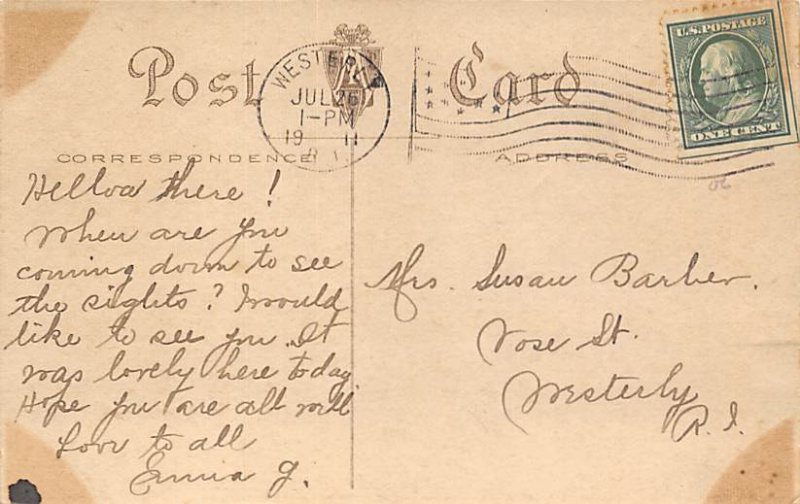 Post Card
WESTERLY
JUL 26
1-PM
19 11
R.I.
U.S. POSTAGE
ONE CENT
CORRESPONDENCE
ADDRESS
Helloa there!
When are you
coming down to see
the sights? I would
like to see you. It
was lovely here today
Hope you are all well
Love to all
G.
Mrs. Susan Barber.
Vose St.
Westerly
R.I.